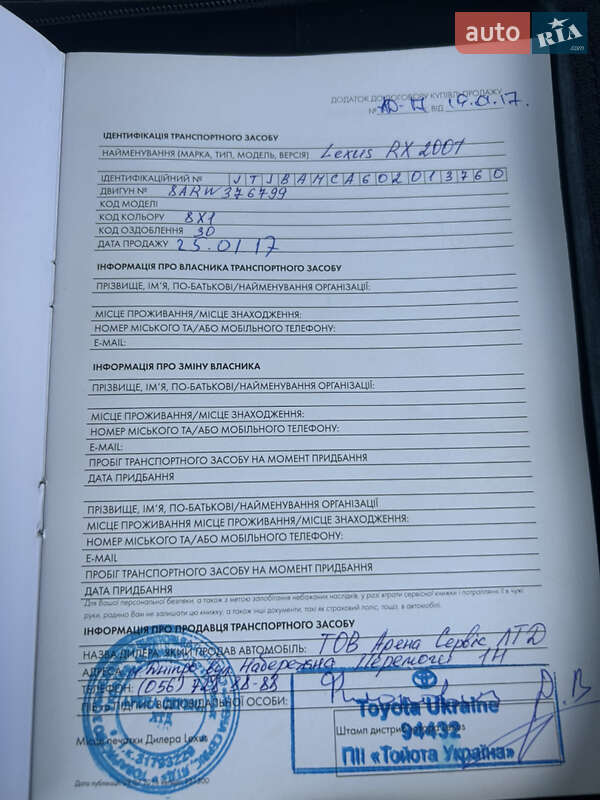 auto RIA.com
ДОДАТОК ДО ДОГОВОРУ КУПІВЛІ-ПРОДАЖУ
№ ВІД 19.01.17.
ІДЕНТИФІКАЦІЯ ТРАНСПОРТНОГО ЗАСОБУ
НАЙМЕНУВАННЯ (МАРКА, ТИП, МОДЕЛЬ, ВЕРСІЯ) Lexus RX 200t
ІДЕНТИФІКАЦІЙНИЙ № JTJBAMCA602013760
ДВИГУН № 8ARW376799
КОД МОДЕЛІ
КОД КОЛЬОРУ 8X1
КОД ОЗДОБЛЕННЯ 30
ДАТА ПРОДАЖУ 25.01.17
ІНФОРМАЦІЯ ПРО ВЛАСНИКА ТРАНСПОРТНОГО ЗАСОБУ
ПРІЗВИЩЕ, ІМ'Я, ПО-БАТЬКОВІ/НАЙМЕНУВАННЯ ОРГАНІЗАЦІЇ:
МІСЦЕ ПРОЖИВАННЯ/МІСЦЕ ЗНАХОДЖЕННЯ:
НОМЕР МІСЬКОГО ТА/АБО МОБІЛЬНОГО ТЕЛЕФОНУ:
E-MAIL:
ІНФОРМАЦІЯ ПРО ЗМІНУ ВЛАСНИКА
ПРІЗВИЩЕ, ІМ'Я, ПО-БАТЬКОВІ/НАЙМЕНУВАННЯ ОРГАНІЗАЦІЇ:
МІСЦЕ ПРОЖИВАННЯ/МІСЦЕ ЗНАХОДЖЕННЯ:
НОМЕР МІСЬКОГО ТА/АБО МОБІЛЬНОГО ТЕЛЕФОНУ:
E-MAIL:
ПРОБІГ ТРАНСПОРТНОГО ЗАСОБУ НА МОМЕНТ ПРИДБАННЯ
ДАТА ПРИДБАННЯ
ПРІЗВИЩЕ, ІМ'Я, ПО-БАТЬКОВІ/НАЙМЕНУВАННЯ ОРГАНІЗАЦІЇ
МІСЦЕ ПРОЖИВАННЯ МІСЦЕ ПРОЖИВАННЯ/МІСЦЕ ЗНАХОДЖЕННЯ:
НОМЕР МІСЬКОГО ТА/АБО МОБІЛЬНОГО ТЕЛЕФОНУ:
E-MAIL
ПРОБІГ ТРАНСПОРТНОГО ЗАСОБУ НА МОМЕНТ ПРИДБАННЯ
ДАТА ПРИДБАННЯ
*Для Вашої персональної безпеки, а також з метою запобігання небажаних наслідків, у разі втрати сервісної книжки і потраплянні її в чужі
руки, радимо Вам не залишати цю книжку, а також інші документи, такі як страховий поліс, тощо, в автомобілі.
ІНФОРМАЦІЯ ПРО ПРОДАВЦЯ ТРАНСПОРТНОГО ЗАСОБУ
НАЗВА ДИЛЕРА, ЯКИЙ ПРОДАВ АВТОМОБІЛЬ: ТОВ Арена Сервіс ЛТД
АДРЕСА: м Дніпро вул Набережна Перемоги 1Н
ТЕЛЕФОН: (056) 728-88-88
ПІБ ТА ПІДПИС ВІДПОВІДАЛЬНОЇ ОСОБИ:
Toyota Ukraine
94432
ПІІ «Тойота Україна»
Штамп
Місце печатки Дилера Lexus
ЛТД
Дата публікації